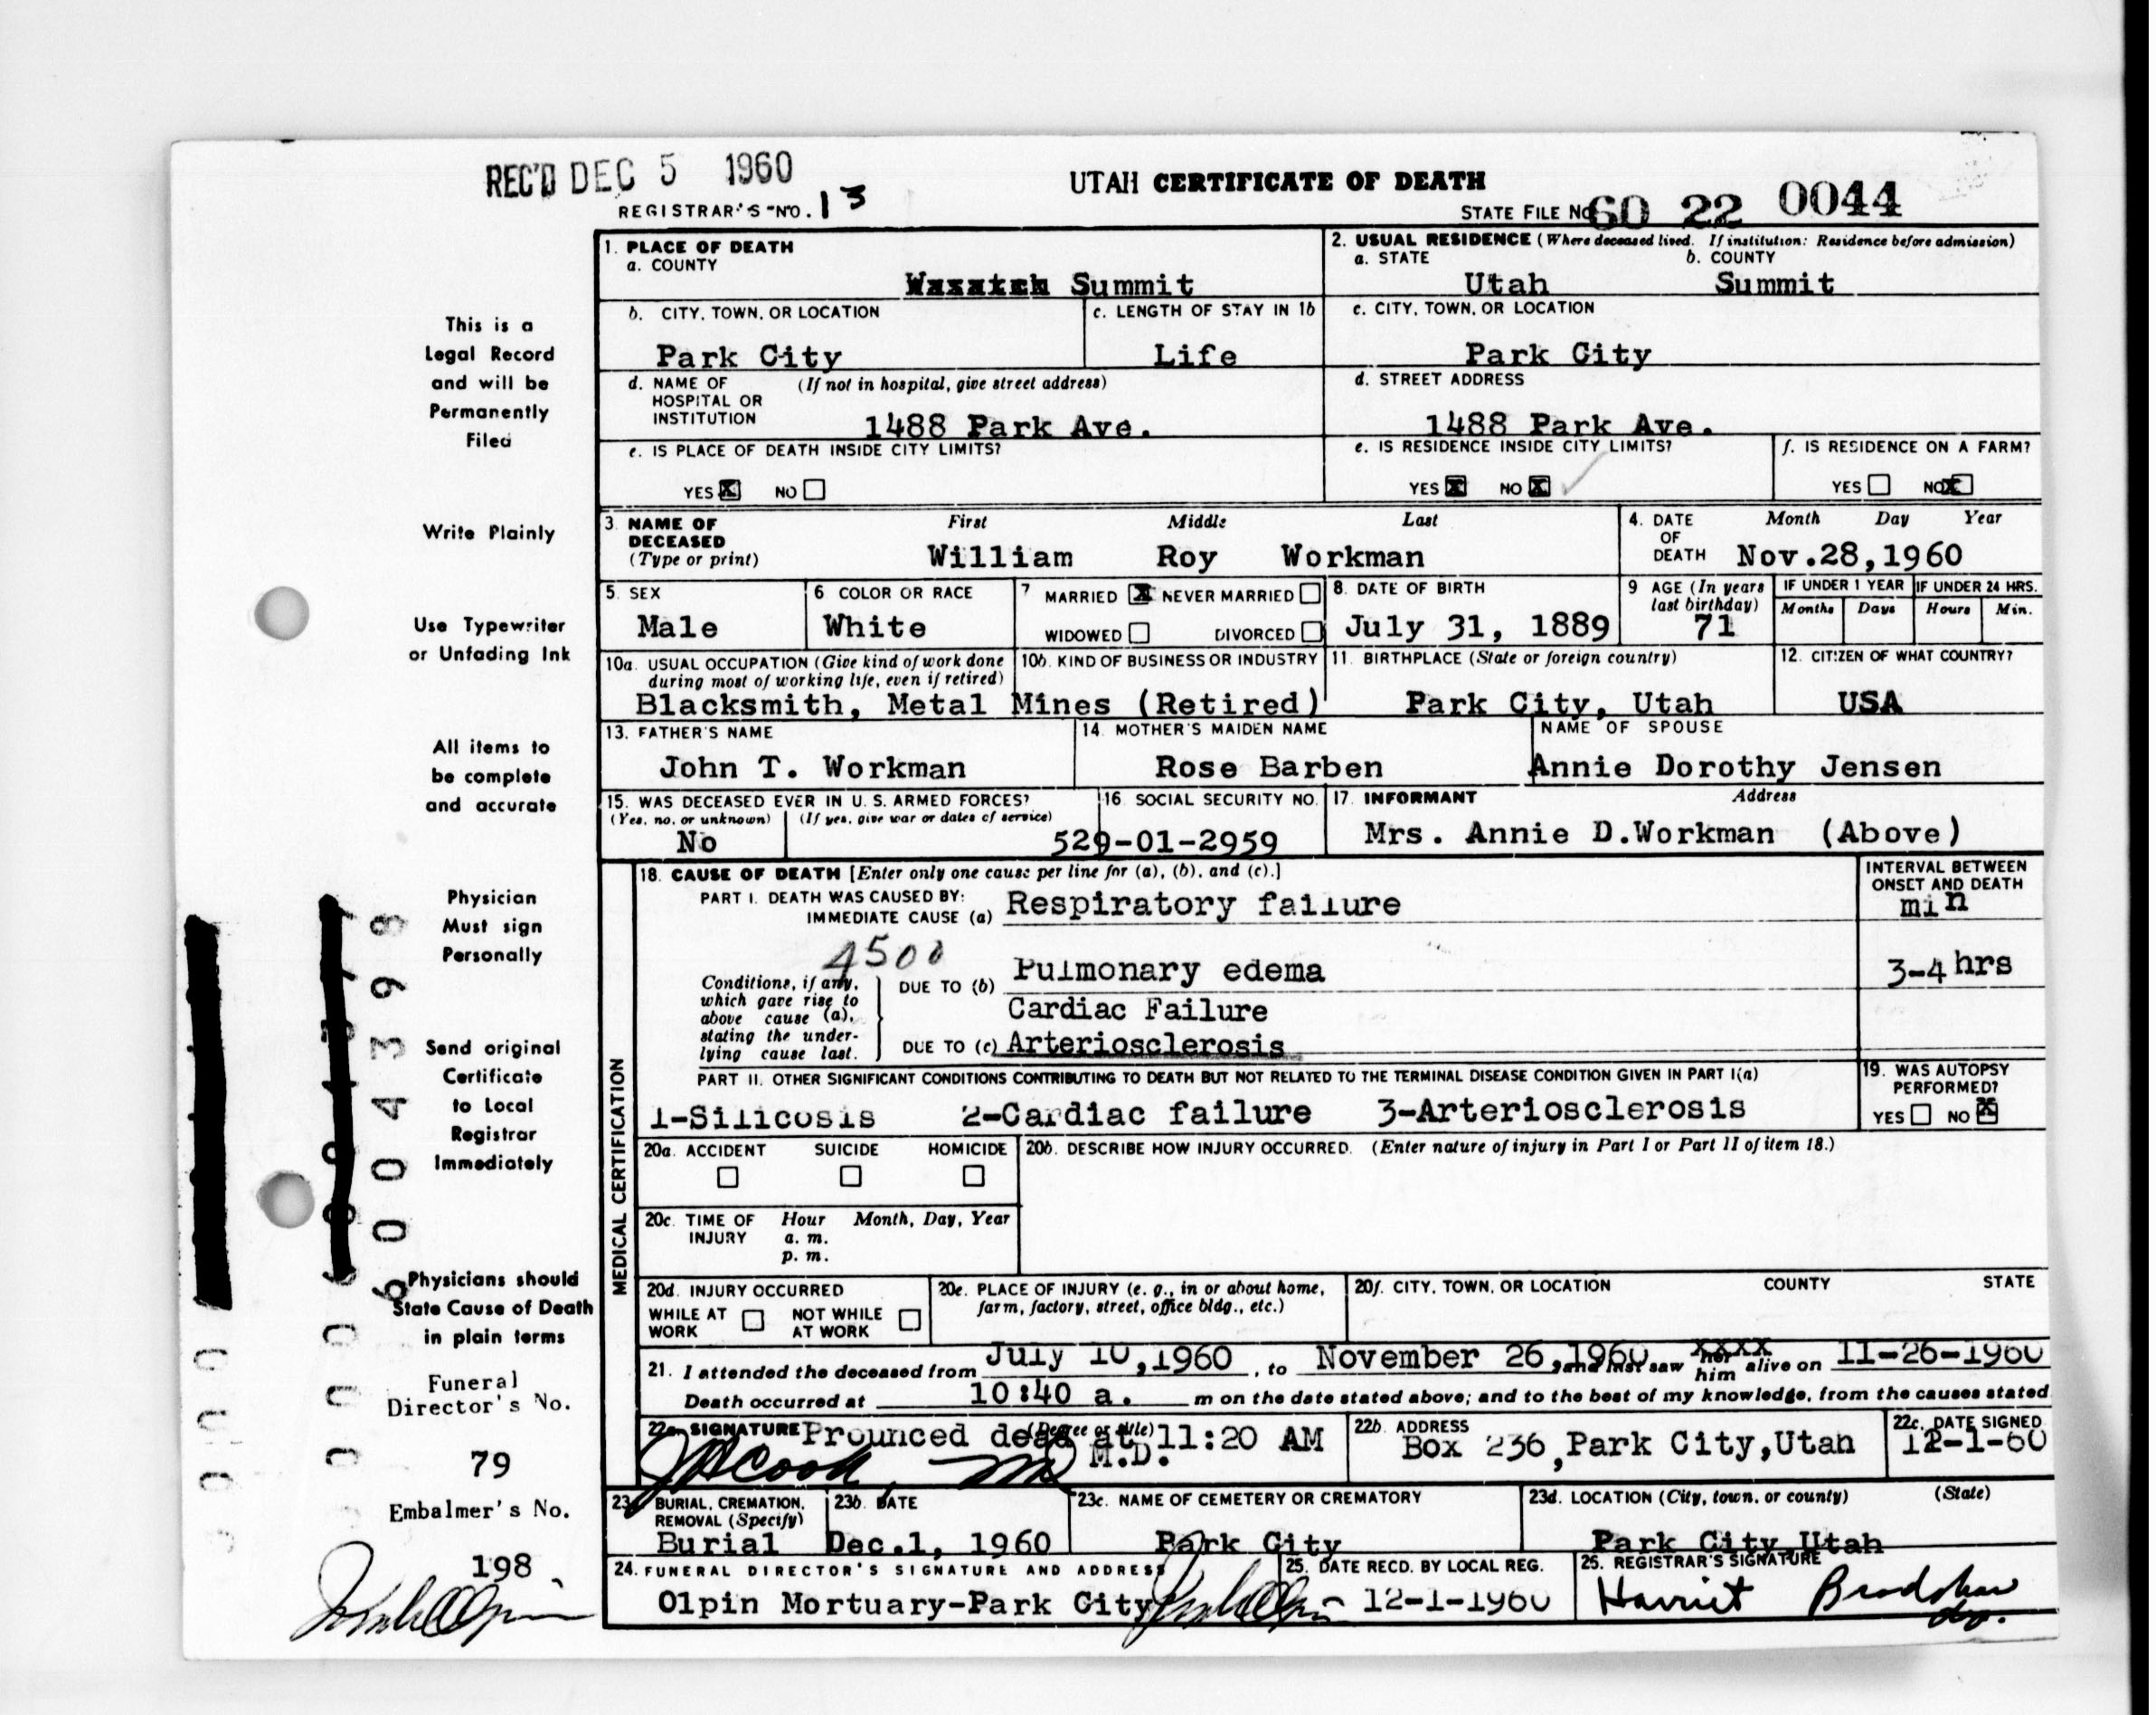 REC'D DEC 5 1960
UTAH CERTIFICATE OF DEATH
REGISTRAR'S NO. 13
STATE FILE NO. 60 22 0044
1. PLACE OF DEATH
a. COUNTY
Wasatch Summit
2. USUAL RESIDENCE (Where deceased lived. If institution: Residence before admission)
a. STATE b. COUNTY
Utah Summit
b. CITY, TOWN, OR LOCATION
Park City
c. LENGTH OF STAY IN 1b
Life
c. CITY, TOWN, OR LOCATION
Park City
d. NAME OF HOSPITAL OR INSTITUTION (If not in hospital, give street address)
1488 Park Ave.
d. STREET ADDRESS
1488 Park Ave.
e. IS PLACE OF DEATH INSIDE CITY LIMITS?
YES X NO
e. IS RESIDENCE INSIDE CITY LIMITS?
YES X NO X
f. IS RESIDENCE ON A FARM?
YES NO X
3. NAME OF DECEASED (Type or print)
First Middle Last
William Roy Workman
4. DATE OF DEATH
Month Day Year
Nov.28,1960
5. SEX
Male
6 COLOR OR RACE
White
7 MARRIED X NEVER MARRIED
WIDOWED DIVORCED
8. DATE OF BIRTH
July 31, 1889
9 AGE (In years last birthday)
71
IF UNDER 1 YEAR
Months Days
IF UNDER 24 HRS.
Hours Min.
10a. USUAL OCCUPATION (Give kind of work done during most of working life, even if retired)
10b. KIND OF BUSINESS OR INDUSTRY
Blacksmith, Metal Mines (Retired)
11. BIRTHPLACE (State or foreign country)
Park City, Utah
12. CITIZEN OF WHAT COUNTRY?
USA
13. FATHER'S NAME
John T. Workman
14. MOTHER'S MAIDEN NAME
Rose Barben
NAME OF SPOUSE
Annie Dorothy Jensen
15. WAS DECEASED EVER IN U. S. ARMED FORCES?
(Yes, no, or unknown) (If yes, give war or dates of service)
No
16 SOCIAL SECURITY NO.
529-01-2959
17. INFORMANT Address
Mrs. Annie D.Workman (Above)
MEDICAL CERTIFICATION
18. CAUSE OF DEATH [Enter only one cause per line for (a), (b), and (c).]
INTERVAL BETWEEN ONSET AND DEATH
PART I. DEATH WAS CAUSED BY:
IMMEDIATE CAUSE (a) Respiratory failure
min
4500
Conditions, if any, which gave rise to above cause (a), stating the underlying cause last.
DUE TO (b) Pulmonary edema
3-4 hrs
Cardiac Failure
DUE TO (c) Arteriosclerosis
PART II. OTHER SIGNIFICANT CONDITIONS CONTRIBUTING TO DEATH BUT NOT RELATED TO THE TERMINAL DISEASE CONDITION GIVEN IN PART I(a)
1-Silicosis 2-Cardiac failure 3-Arteriosclerosis
19. WAS AUTOPSY PERFORMED?
YES NO X
20a. ACCIDENT SUICIDE HOMICIDE
20b. DESCRIBE HOW INJURY OCCURRED. (Enter nature of injury in Part I or Part II of item 18.)
20c. TIME OF INJURY Hour Month, Day, Year
a. m.
p. m.
20d. INJURY OCCURRED
WHILE AT WORK NOT WHILE AT WORK
20e. PLACE OF INJURY (e. g., in or about home, farm, factory, street, office bldg., etc.)
20f. CITY, TOWN, OR LOCATION COUNTY STATE
21. I attended the deceased from July 10,1960, to November 26,1960 and last saw her xxxx him alive on 11-26-1960
Death occurred at 10:40 a. m on the date stated above; and to the best of my knowledge, from the causes stated
22a. SIGNATURE (Degree or title)
Prounced dead at 11:20 AM
M.D.
22b. ADDRESS
Box 236,Park City,Utah
22c. DATE SIGNED
12-1-60
23a BURIAL, CREMATION, REMOVAL (Specify)
Burial
23b. DATE
Dec.1, 1960
23c. NAME OF CEMETERY OR CREMATORY
Park City
23d. LOCATION (City, town, or county) (State)
Park City,Utah
24. FUNERAL DIRECTOR'S SIGNATURE AND ADDRESS
Olpin Mortuary-Park City
25. DATE RECD. BY LOCAL REG.
12-1-1960
25. REGISTRAR'S SIGNATURE
Harriet Bradshaw
dp.
This is a
Legal Record
and will be
Permanently
Filed
Write Plainly
Use Typewriter
or Unfading Ink
All items to
be complete
and accurate
Physician
Must sign
Personally
Send original
Certificate
to Local
Registrar
Immediately
Physicians should
State Cause of Death
in plain terms
Funeral
Director's No.
79
Embalmer's No.
198
6004398